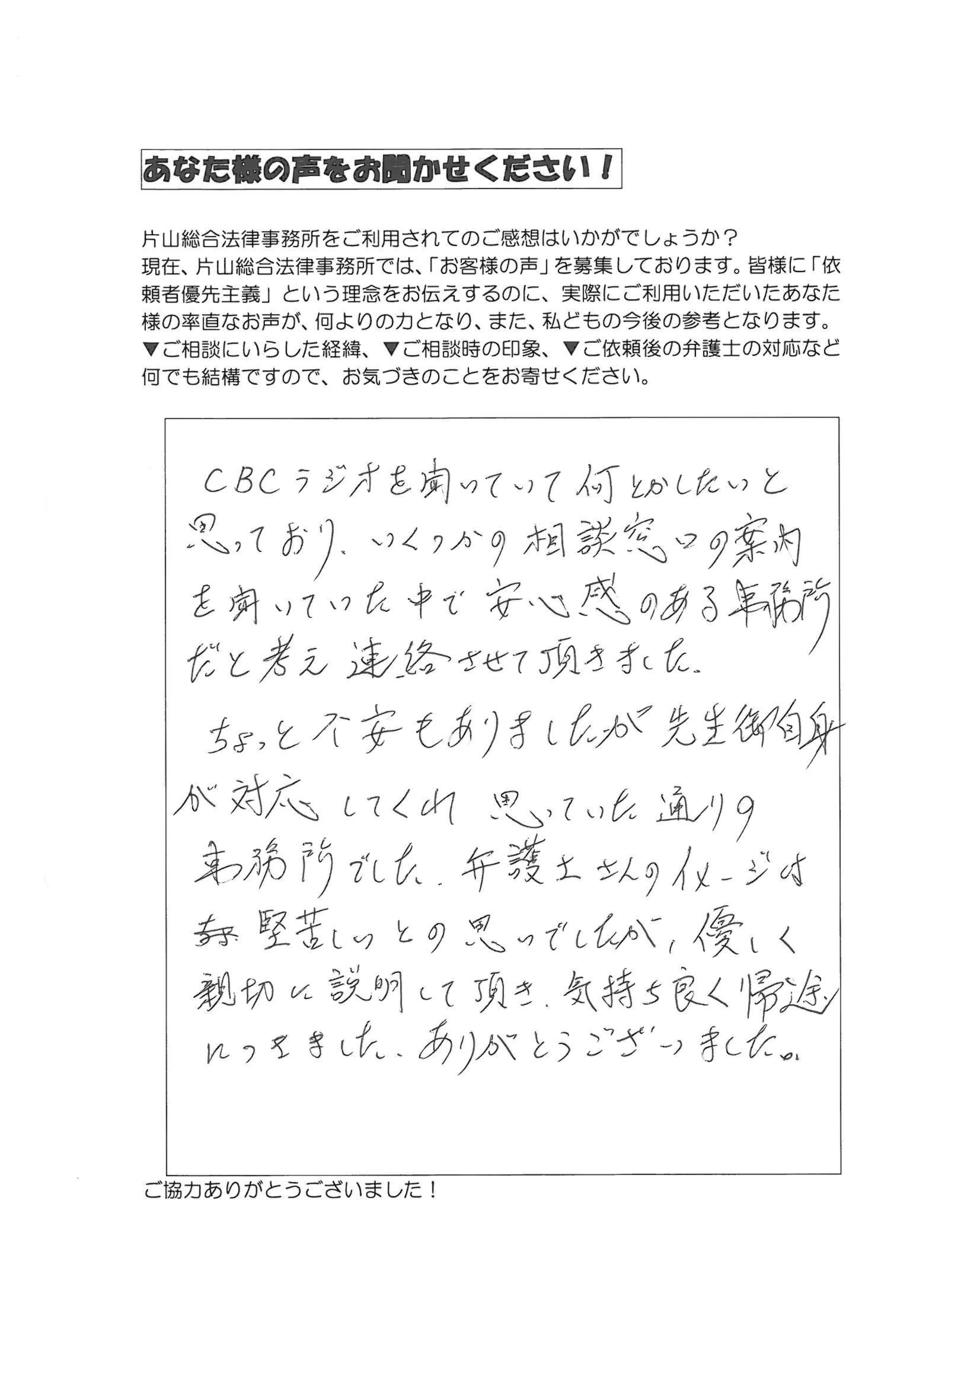 あなた様の声をお聞かせください！
片山総合法律事務所をご利用されてのご感想はいかがでしょうか？
現在、片山総合法律事務所では、「お客様の声」を募集しております。皆様に「依
頼者優先主義」という理念をお伝えするのに、実際にご利用いただいたあなた
様の率直なお声が、何よりの力となり、また、私どもの今後の参考となります。
▼ご相談にいらした経緯、▼ご相談時の印象、▼ご依頼後の弁護士の対応など
何でも結構ですので、お気づきのことをお寄せください。
CBCラジオを聞いていて何とかしたいと
思っており、いくつかの相談窓口の案内
を聞いていた中で安心感のある事務所
だと考え連絡させて頂きました。
ちょっと不安もありましたが先生御自身
が対応してくれ思っていた通りの
事務所でした。弁護士さんのイメージは
堅苦しいとの思いでしたが、優しく
親切に説明して頂き、気持ち良く帰途
につきました。ありがとうございました。
ご協力ありがとうございました！